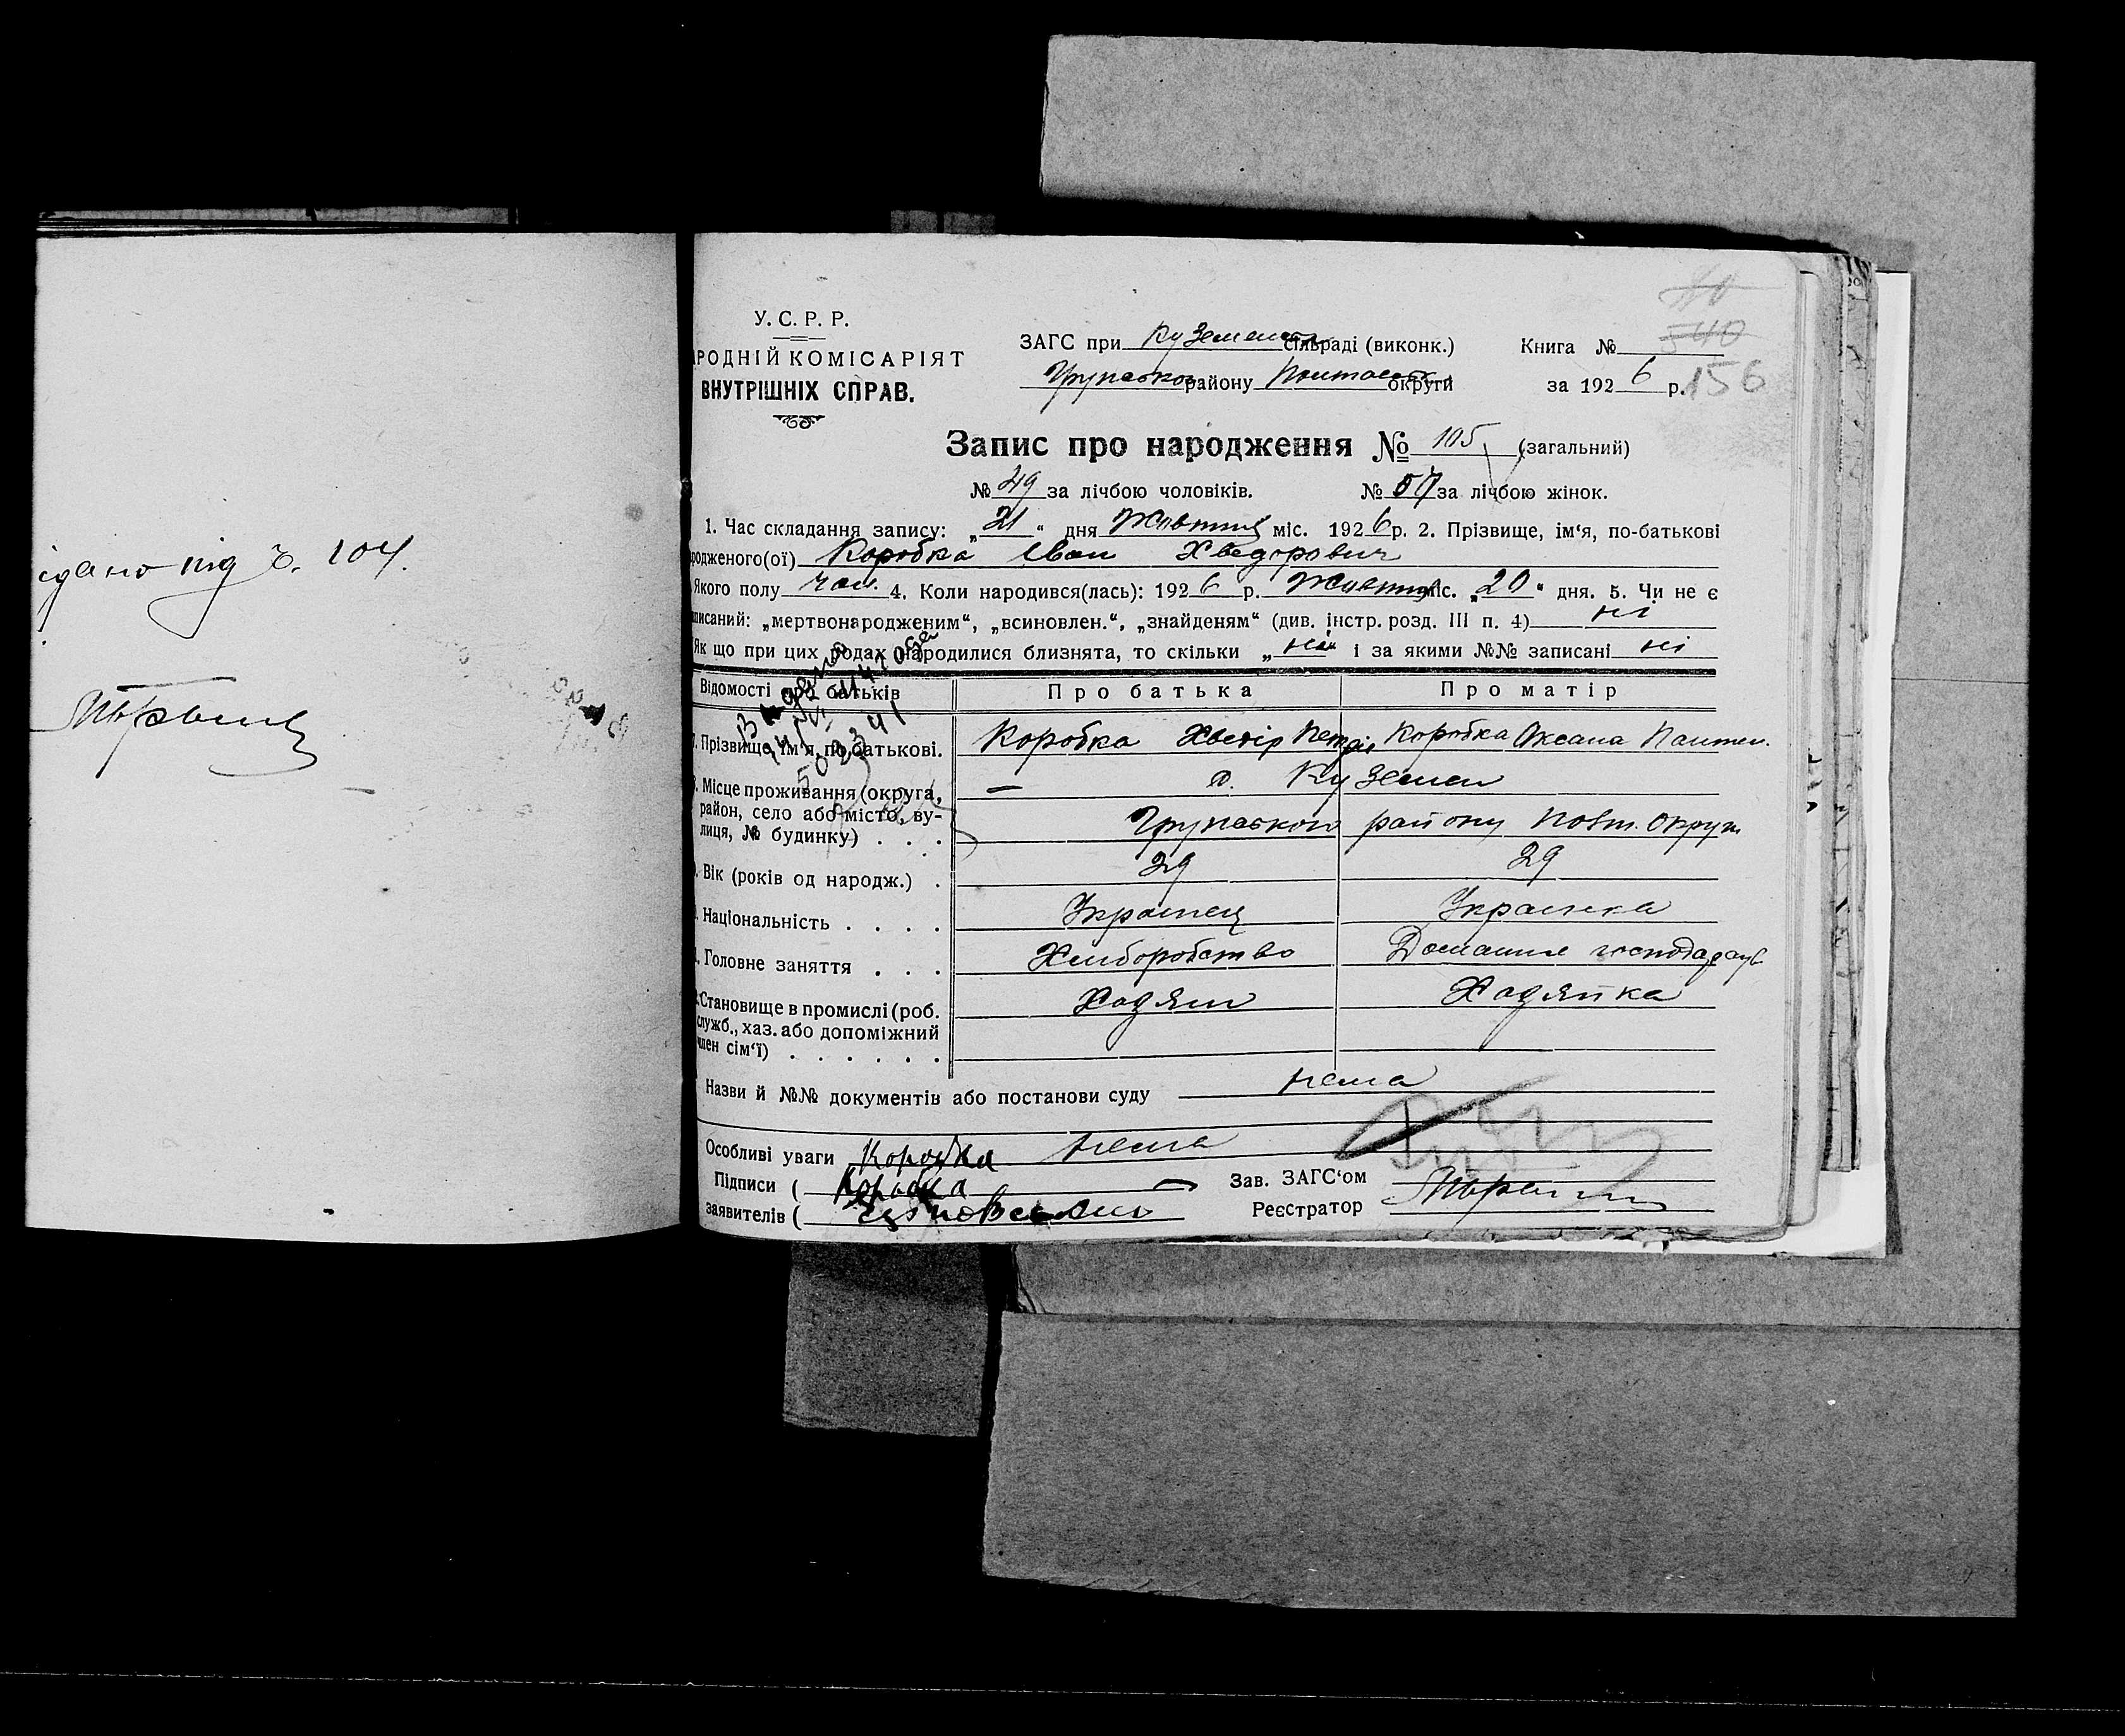 ідано під Ч. 104.
У. С. Р. Р.
РОДНІЙ КОМІСАРІЯТ
ВНУТРІШНІХ СПРАВ.
ЗАГС при Куземенск сільраді (виконк.)
Грунсько району Полтавськ округи
Книга №
540
за 1926 р. 156
Запис про народження № 105 (загальний)
№ 49 за лічбою чоловіків. № 57 за лічбою жінок.
1. Час складання запису: „21“ дня Жовтня міс. 1926 р. 2. Прізвище, ім‘я, по-батькові
родженого(ої) Коробка Іван Хведорович
Якого полу чол. 4. Коли народився(лась): 1926 р. Жовтня міс. „20“ дня. 5. Чи не є
писаний: „мертвонародженим“, „всиновлен.“, „знайденям“ (див. інстр. розд. III п. 4) ні
Як що при цих родах народилися близнята, то скільки „ні“ і за якими №№ записані ні
Видано
502341
Відомості про батьків
Про батька
Про матір
7. Прізвище, ім‘я, по батькові.
Коробка Хведір
Коробка Оксана Пантел.
8. Місце проживання (округа,
район, село або місто, ву-
лиця, № будинку) . . .
— с. Куземен
Грунського району Полт. Округи
Вік (років од народж.) .
29
29
Національність . . . .
Українец
Українка
Головне заняття . . .
Хліборобство
Домашнє господарств
Становище в промислі (роб.
служб., хаз. або допоміжний
член сім‘ї) . . . . . .
Хадяін
Хадяйка
Назви й №№ документів або постанови суду нема
Особливі уваги нема
Коробка
Підписи ( Коробка
заявителів (
Зав. ЗАГС‘ом
Реєстратор